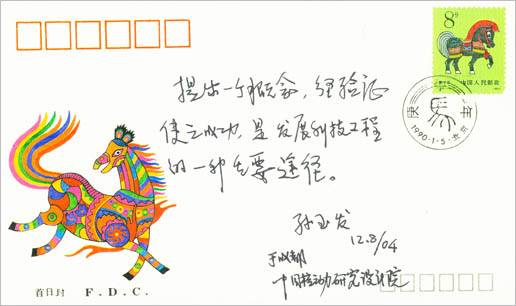 8分
中国人民邮政
提出一个概念，经验证
使之成功，是发展科技工程
的一种主要途径。
1990·1·5·北京
孙玉发
12.8/04
于成都
中国核动力研究设计院
首日封 F.D.C.